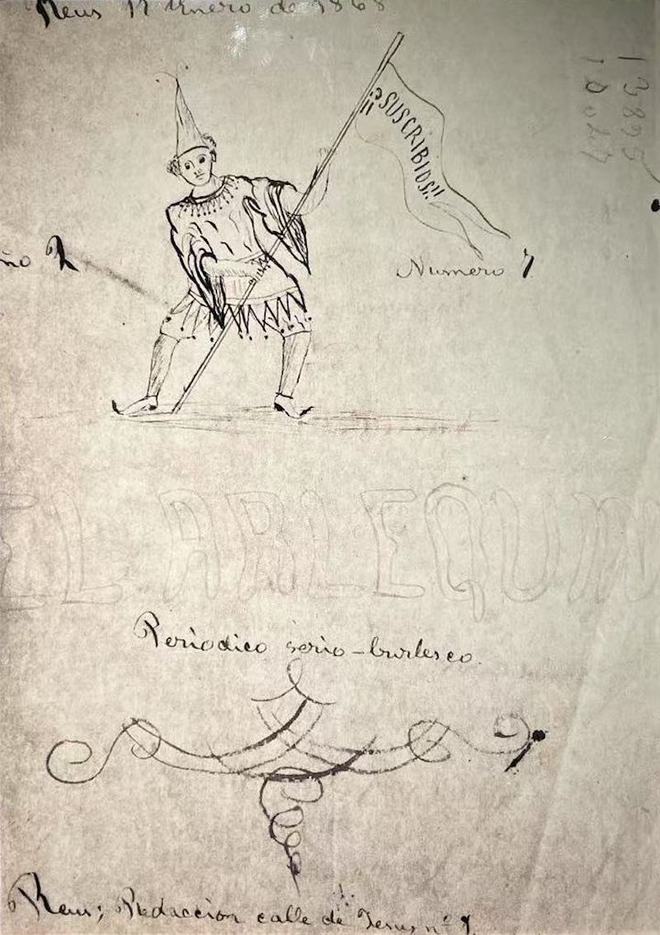 Reus Enero de 1868
¡¡SUSCRIBIOS!!
ño 2
Numero 7
EL ARLEQUIN
Periodico serio-burlesco.
Reus; Redaccion calle de Jesus nº